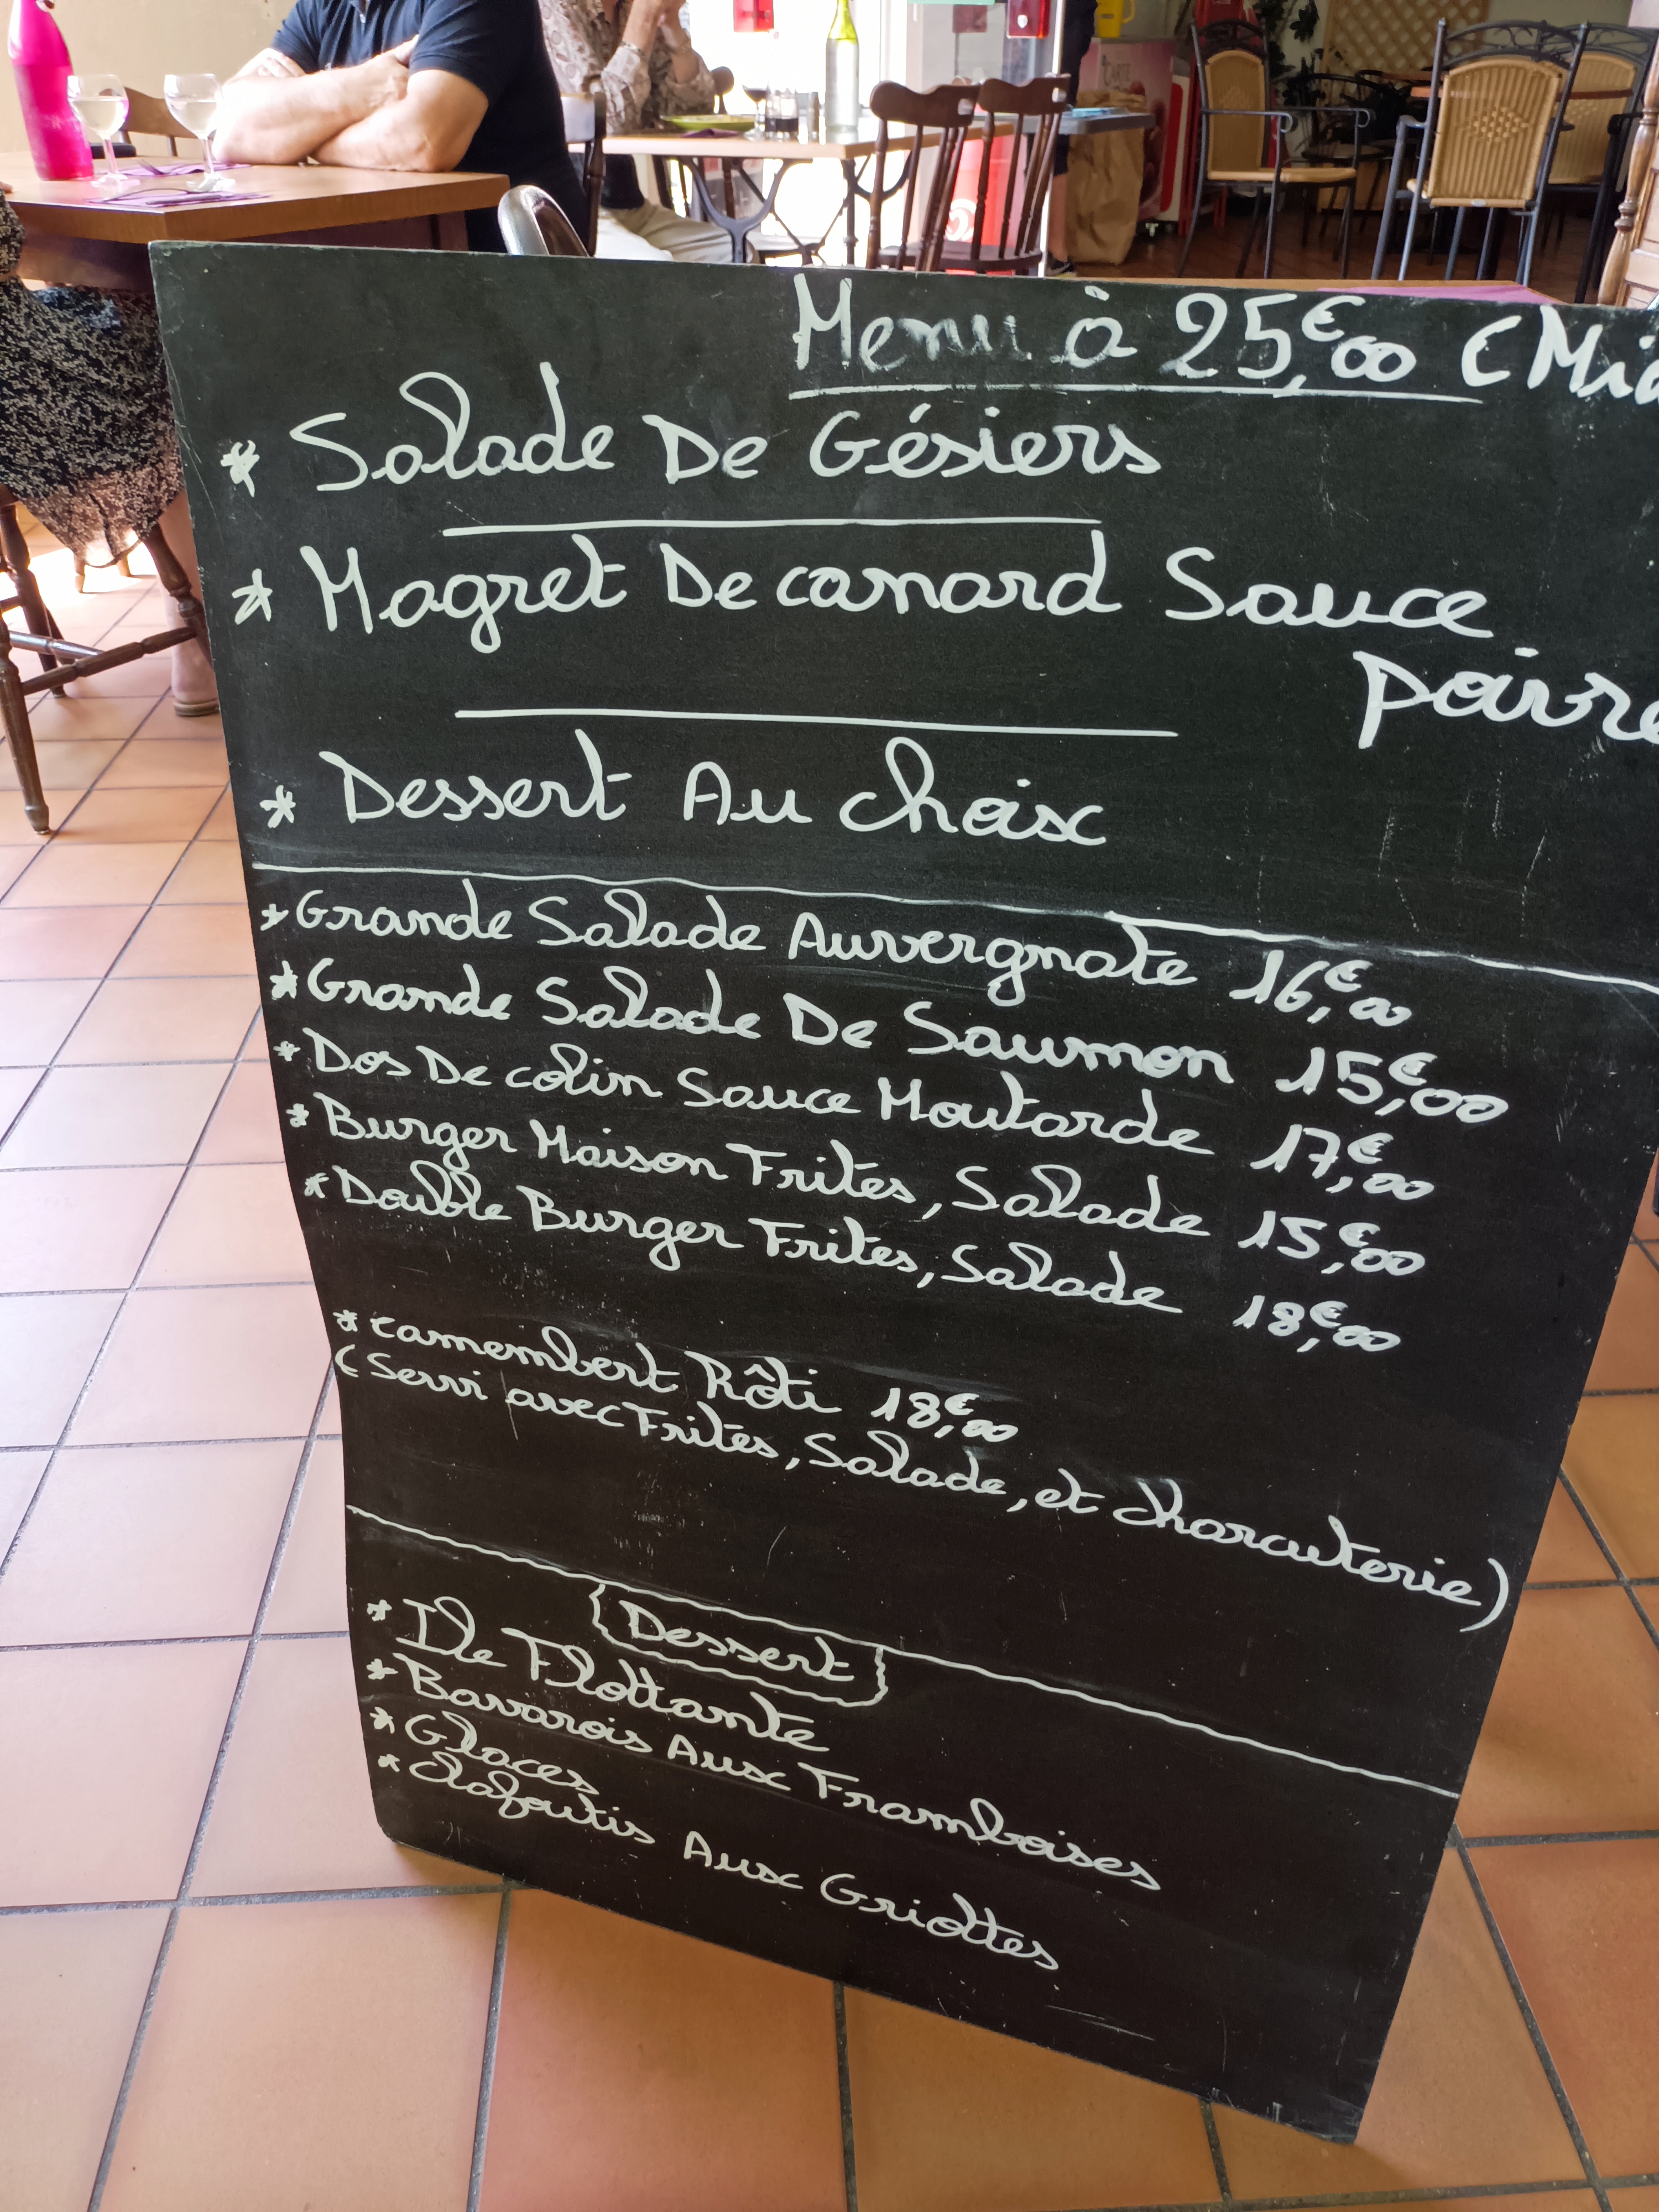 Menu à 25€,00 (Mi
* Salade De Gésiers
* Magret De canard Sauce
poivre
* Dessert Au choix
* Grande Salade Auvergnate 16€,00
* Grande Salade De Saumon 15€,00
* Dos De colin Sauce Moutarde 17€,00
* Burger Maison Frites, Salade 15€,00
* Double Burger Frites, Salade 18€,00
* camembert Rôti 18€,00
(Servi avec Frites, Salade, et charcuterie)
Dessert
* Ile Flottante
* Bavarois Aux Framboises
* Glaces
* clafoutis Aux Griottes